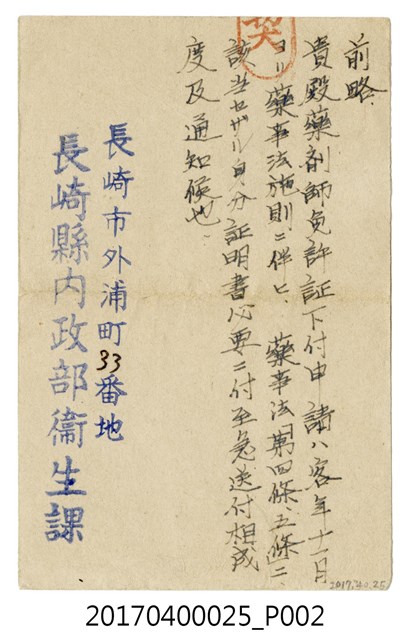 前略
貴殿藥剤師免許証下付申請ハ客年十一月
ヨリ藥事法施則ニ伴ヒ藥事法「第四條、五條」ニ
該当セザル自、分証明書必要ニ付至急送付相成
度及通知候也
長崎市外浦町33番地
長崎縣内政部衛生課
2017.40.25
20170400025_P002